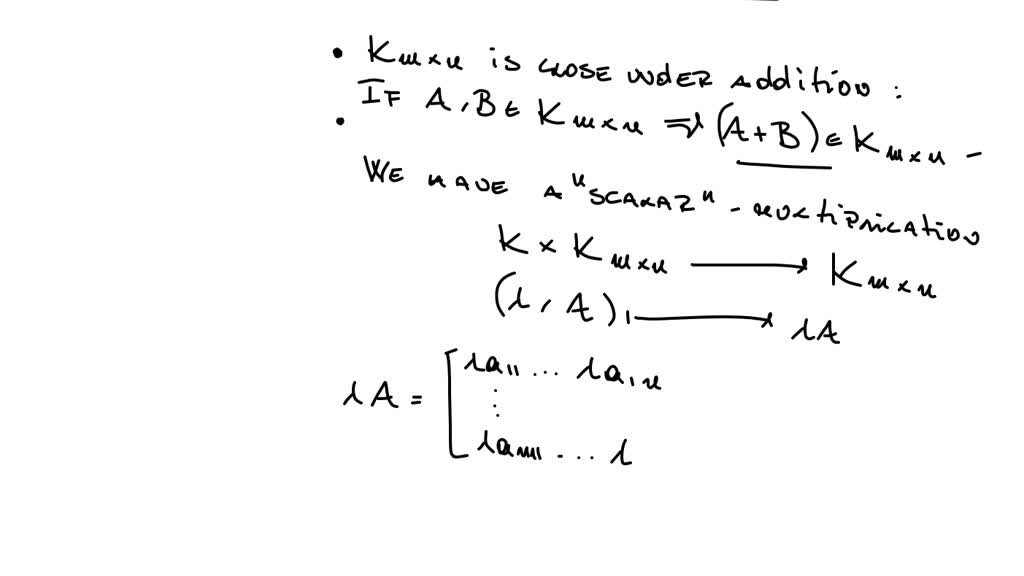 • K m×n is close under addition :
If A, B ∈ K m×n ⇒ (A+B) ∈ K m×n -
• We have a "scalar" - multiplication
K × K m×n ⟶ K m×n
(λ, A) ⟼ λA
λA = [ λa11 ... λa1n
⋮
λam1 ... λ